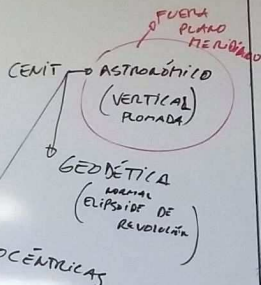 FUERA
PLANO
MERIDIANO
CENIT ASTRONÓMICO
(VERTICAL
PLOMADA)
GEODÉTICA
(NORMAL
ELIPSOIDE DE
REVOLUCIÓN)
OCÉNTRICAS